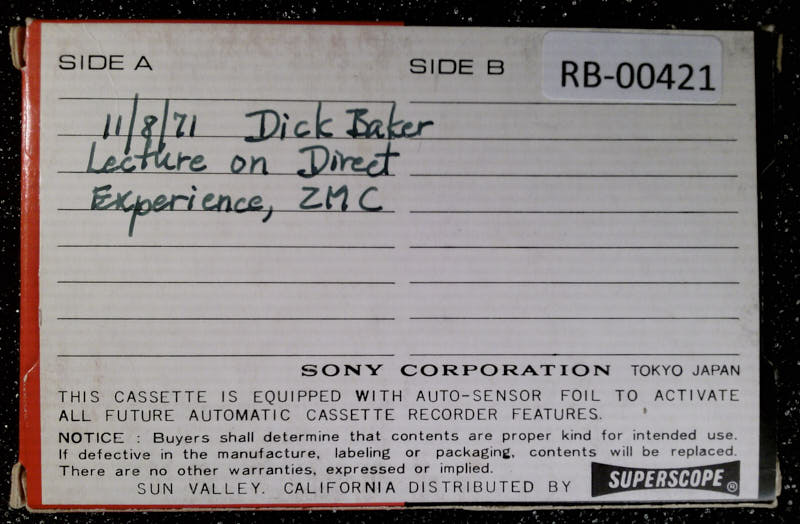 SIDE A
SIDE B
RB-00421
11/8/71 Dick Baker
Lecture on Direct
Experience, ZMC
SONY CORPORATION TOKYO JAPAN
THIS CASSETTE IS EQUIPPED WITH AUTO-SENSOR FOIL TO ACTIVATE
ALL FUTURE AUTOMATIC CASSETTE RECORDER FEATURES.
NOTICE : Buyers shall determine that contents are proper kind for intended use.
If defective in the manufacture, labeling or packaging, contents will be replaced.
There are no other warranties, expressed or implied.
SUN VALLEY. CALIFORNIA DISTRIBUTED BY SUPERSCOPE ®